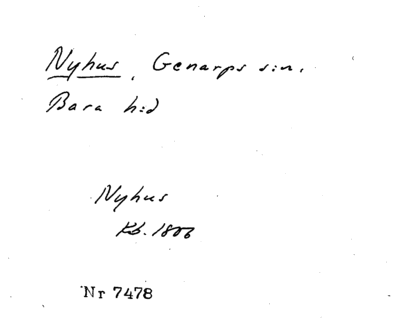 Nyhus, Genarps s:n.
Bara h:d
Nyhus
Kb. 1806
Nr 7478